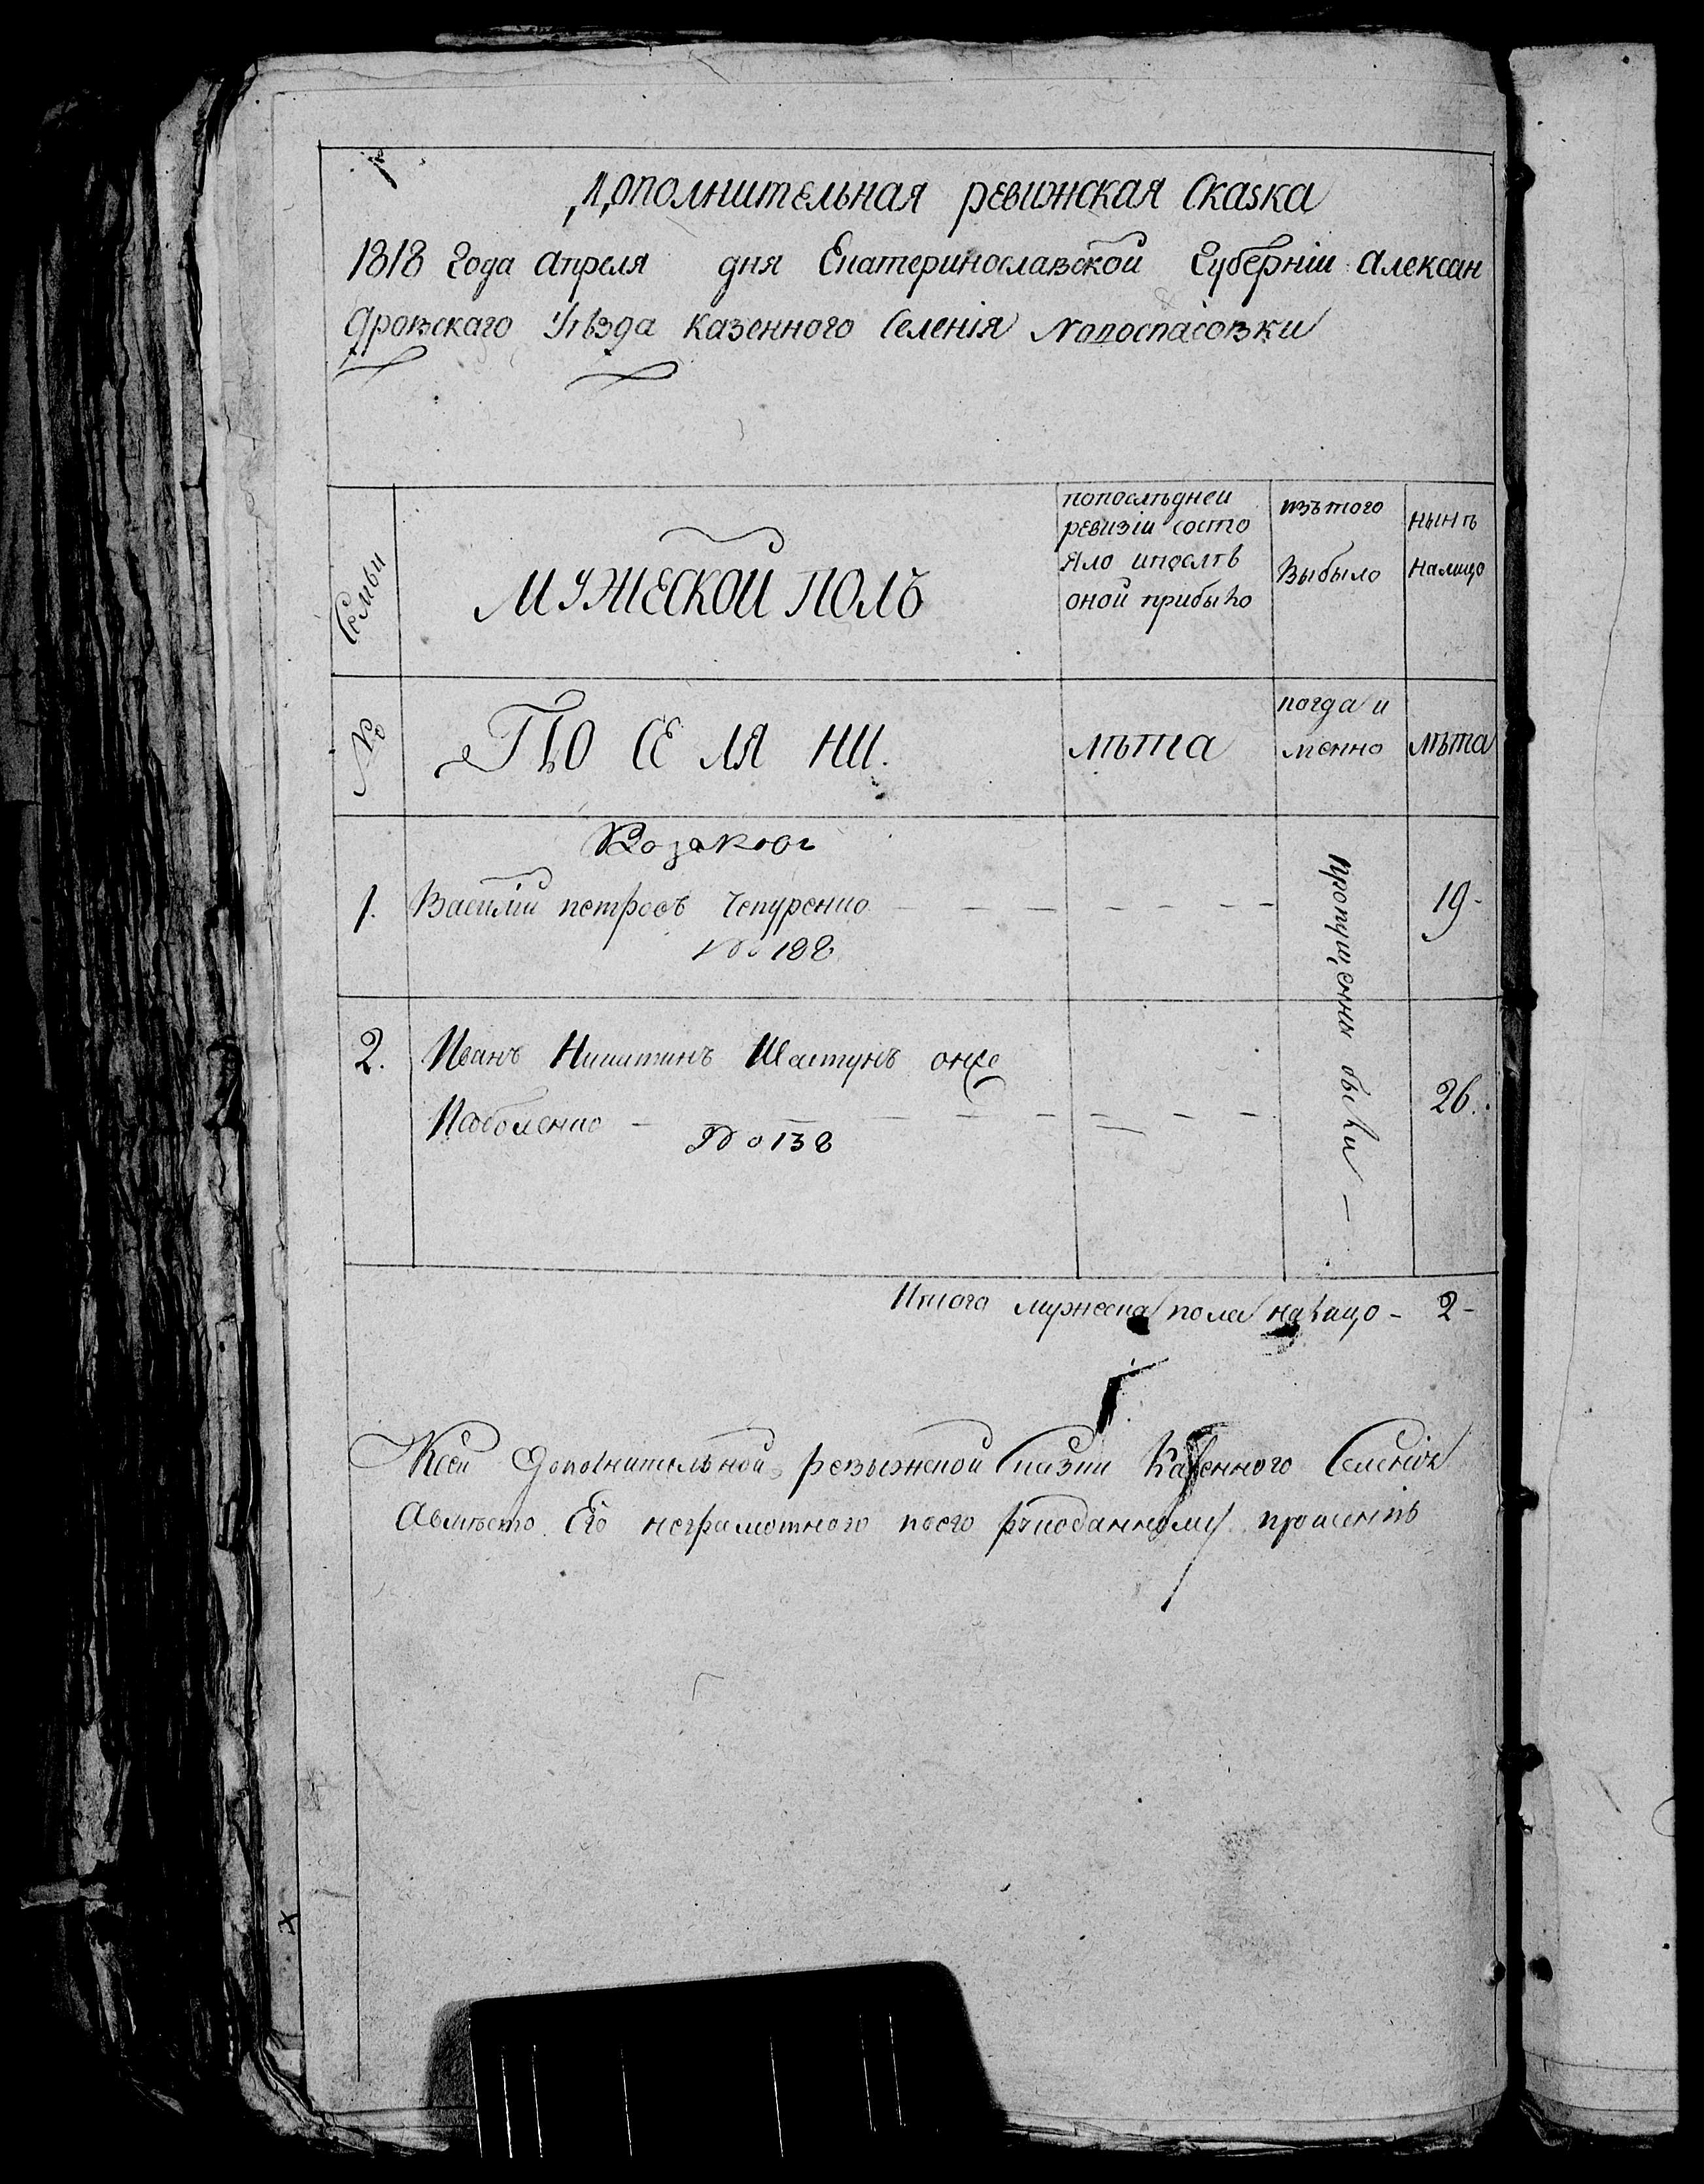 Дополнительная ревижская Сказка
1818 Года Апреля дня Екатеринославской Губерніи Алексан
дровскаго Уѣзда Казенного Селенія Новоспасовки
Семьи
МУЖЕСКОЙ ПОЛЪ
попослѣдней
ревизіи состо
яло ипослѣ
оной прибыло
изътого
Выбыло
нынѣ
налицо
№
ПО СЕ ЛЯ НИ.
лѣта
когда и
менно
лѣта
Козаков
1. Василій петровъ Чепуренко — — — — — — 19-
№ 188
2. Иванъ Никитинъ Шастунъ онже
Коволенко — — — — — — 26.
№ 138
пропущенны были —
Итого мужеска пола налицо - 2-
Ксей дополнительной ревижской сказки Казенного Селенія
Авмѣсто Его неграмотного поего рукоданному прошенію